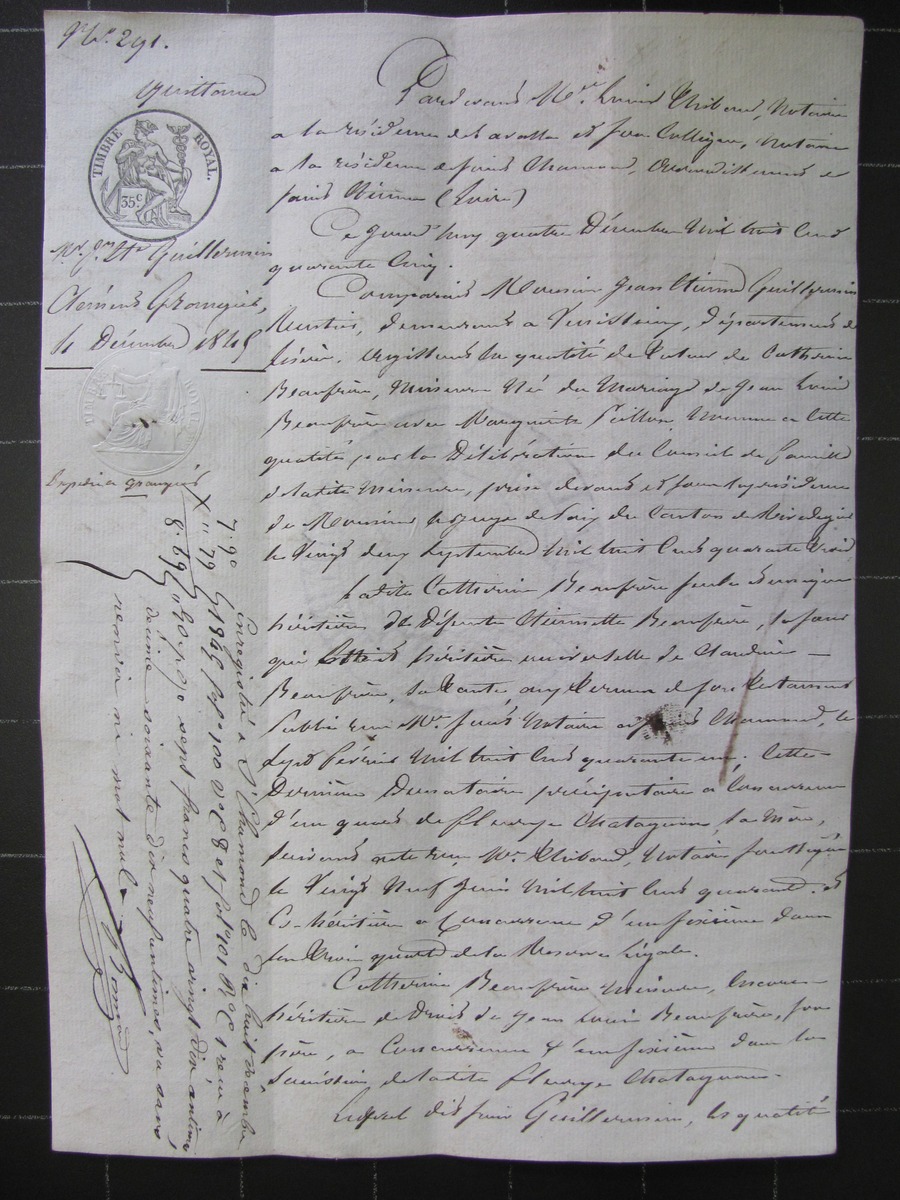 Nº 291.
Quittance
TIMBRE ROYAL.
35 c
Mr. Jn. Et. Guillermin
Clémens Grangier,
4 Décembre 1845
Pardevant Me. Louis Thibaud, Notaire
à la résidence de Lavalla et son Collègue, Notaire
à la résidence de Saint Chamond, arrondissement de
Saint Etienne (Loire)
Ce jourd'huy quatre Décembre Mil huit Cent
quarante Cinq.
Comparait Monsieur Jean Etienne Guillermin
Rentier, demeurant à Vénissieux, département de
l'isère, agissant en qualité de tuteur de Catherine
Beaufrère, Mineure née du Mariage de Jean Louis
Beaufrère avec Marguerite, Nommé à cette
qualité par la Délibération du Conseil de famille
de ladite Mineure, prise devant et sous la présidence
de Monsieur le juge de Paix du Canton de Rive de gier
le Vingt deux Septembre Mil huit Cent quarante trois
Ladite Catherine Beaufrère seule et unique
héritière de Défunte Etiennette Beaufrère, sa sœur
qui était héritière universelle de Claudine
Beaufrère, sa tante, aux termes de son testament
Publié reçu Me. Notaire à Saint Chamond, le
sept Février Mil huit Cent quarante un; Cette
Dernière Donataire préciputaire à Concurrence
d'un quart de Fleurye Chatagnon, sa Mère,
Suivant acte reçu Me. Thibaud, Notaire soussigné
le Vingt Neuf Juin Mil huit Cent quarante, et
Co-héritière à Concurrence d'un sixième dans
les trois quarts de la Réserve légale.
Catherine Beaufrère Mineure, encore
héritière de Droit de Jean Louis Beaufrère, son
père, à Concurrence d'un sixième dans la
Succession de ladite Fleurye Chatagnon.
Lequel dit sieur Guillermin, es qualité
Enregistré à St Chamond le dix huit décembre
1845 fº 100 Vº C 8 et fº 101 Rº C 1 reçu à
sept francs quatre vingt dix centimes
décime soixante dix neuf centimes, va sans
renvoi ni mot nul